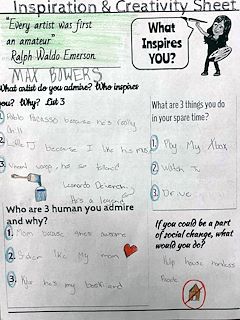 Inspiration & Creativity Sheet
"Every artist was first
an amateur"
Ralph Waldo Emerson
What
Inspires
YOU?
MAX BOWERS
What artist do you admire? Who inspires
you? Why? List 3
1. Pablo Picasso because he's really
chill
2. because I like his music
3. he so
Leonardo
He's a legend
What are 3 things you do
in your spare time?
1. Play My Xbox
2. Watch
3. Drive
Who are 3 human you admire
and why?
1. Mom because she's awesome
2. like My mom
3. has my best friend
If you could be a part
of social change, what
would you do?
Help house homeless
People